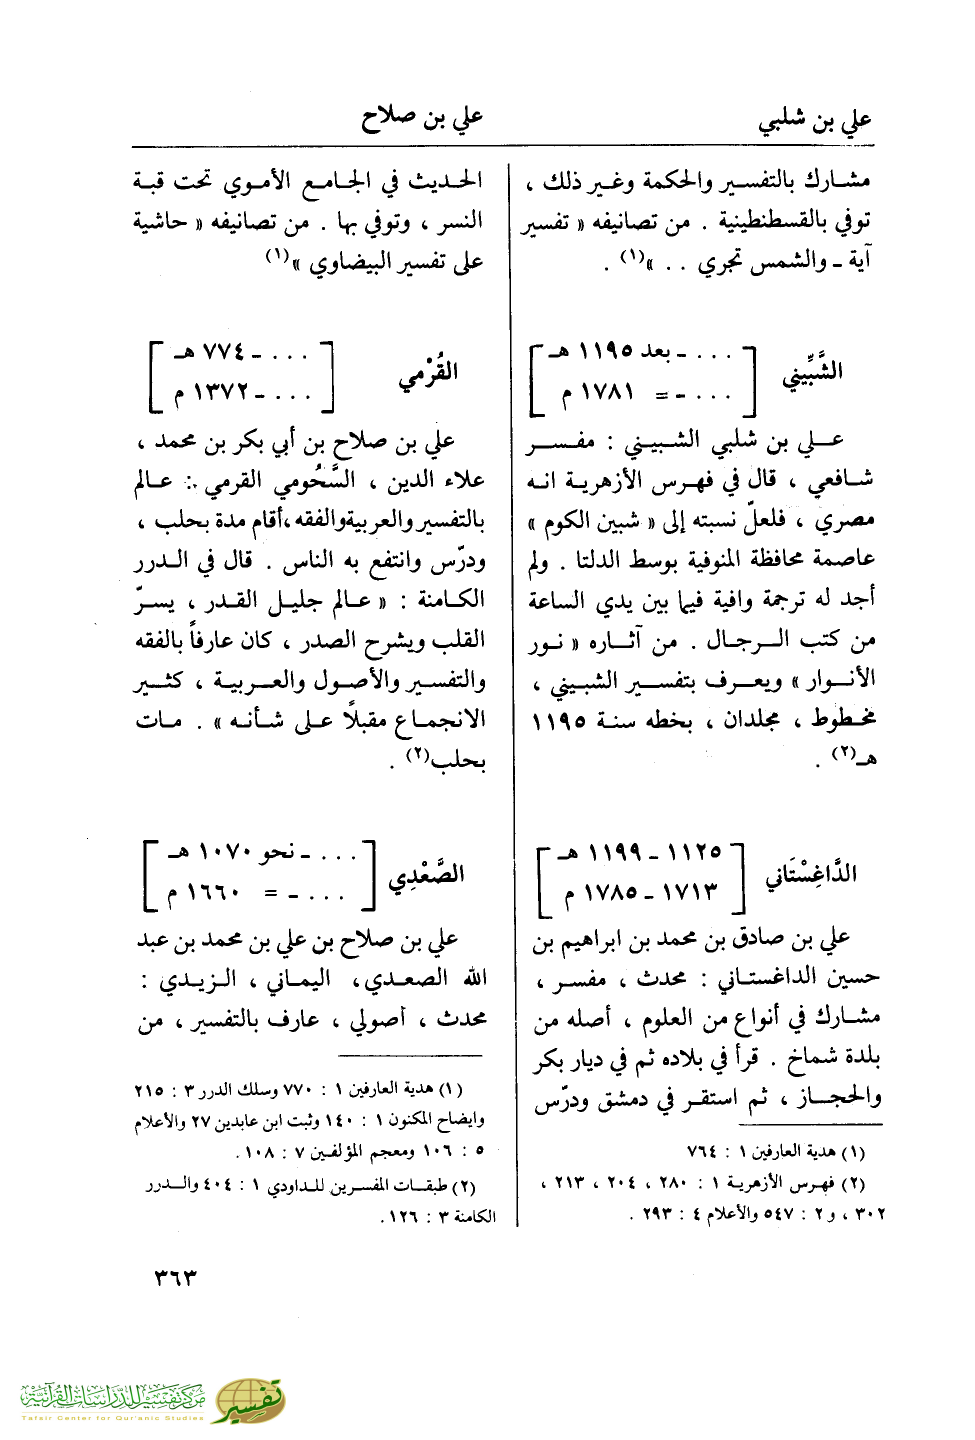 علي بن شلبي
علي بن صلاح
مشارك بالتفسير والحكمة وغير ذلك ،
توفي بالقسطنطينية . من تصانيفه « تفسير
آية ـ والشمس تجري . . »(١) .
الشَّبِّيني
[ . . . ـ بعد ١١٩٥ هـ
. . . ـ = ١٧٨١ م ]
عـلي بن شلبي الشبيني : مفسر
شافعي ، قال في فهرس الأزهرية انه
مصري ، فلعلّ نسبته إلى « شبين الكوم »
عاصمة محافظة المنوفية بوسط الدلتا . ولم
أجد له ترجمة وافية فيما بين يدي الساعة
من كتب الرجال . من آثاره « نور
الأنوار » ويعرف بتفسير الشبيني ،
مخطوط ، مجلدان ، بخطه سنة ١١٩٥
هـ(٢) .
الدَّاغِسْتَاني
[ ١١٢٥ ـ ١١٩٩ هـ
١٧١٣ ـ ١٧٨٥ م ]
علي بن صادق بن محمد بن ابراهيم بن
حسين الداغستاني : محدث ، مفسر ،
مشارك في أنواع من العلوم ، أصله من
بلدة شماخ . قرأ في بلاده ثم في ديار بكر
والحجاز ، ثم استقر في دمشق ودرّس
(١) هدية العارفين ١ : ٧٦٤
(٢) فهرس الأزهرية ١ : ٢٨٠ ، ٢٠٤ ، ٢١٣ ،
٣٠٢ ، و٢ : ٥٤٧ والأعلام ٤ : ٢٩٣ .
الحديث في الجامع الأموي تحت قبة
النسر ، وتوفي بها . من تصانيفه « حاشية
على تفسير البيضاوي »(١)
القُرْمي
[ . . . ـ ٧٧٤ هـ
. . . ـ ١٣٧٢ م ]
علي بن صلاح بن أبي بكر بن محمد ،
علاء الدين ، السَّحُومي القرمي : عالم
بالتفسير والعربية والفقه ، أقام مدة بحلب ،
ودرّس وانتفع به الناس . قال في الدرر
الكامنة : « عالم جليل القدر ، يسرّ
القلب ويشرح الصدر ، كان عارفاً بالفقه
والتفسير والأصول والعربية ، كثير
الانجماع مقبلًا على شأنه » . مات
بحلب(٢) .
الصَّعْدِي
[ . . . ـ نحو ١٠٧٠ هـ
. . . ـ = ١٦٦٠ م ]
علي بن صلاح بن علي بن محمد بن عبد
الله الصعدي ، اليماني ، الزيدي :
محدث ، أصولي ، عارف بالتفسير ، من
(١) هدية العارفين ١ : ٧٧٠ وسلك الدرر ٣ : ٢١٥
وايضاح المكنون ١ : ١٤٠ وثبت ابن عابدين ٢٧ والأعلام
٥ : ١٠٦ ومعجم المؤلفين ٧ : ١٠٨ .
(٢) طبقات المفسرين للداودي ١ : ٤٠٤ والدرر
الكامنة ٣ : ١٢٦ .
٣٦٣
مركز تفسير للدراسات القرآنية
Tafsir Center for Qur'anic Studies
تفسير